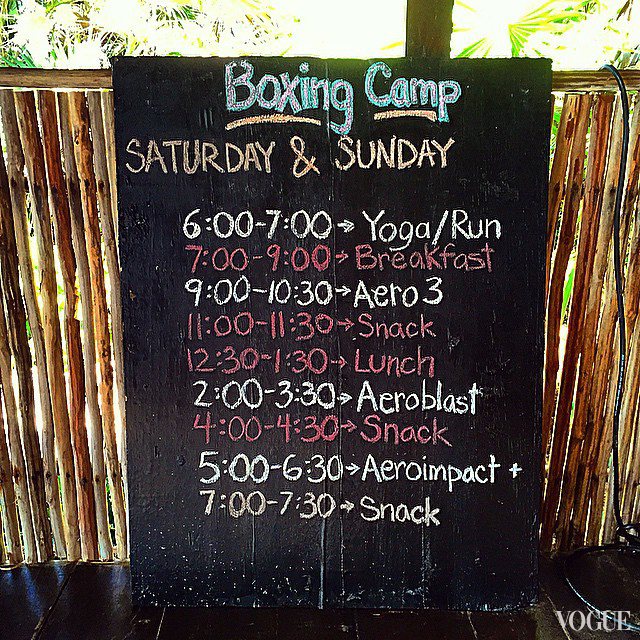 Boxing Camp
SATURDAY & SUNDAY
6:00-7:00→Yoga/Run
7:00-9:00→Breakfast
9:00-10:30→Aero 3
11:00-11:30→Snack
12:30-1:30→Lunch
2:00-3:30→Aeroblast
4:00-4:30→Snack
5:00-6:30→Aeroimpact +
7:00-7:30→Snack
VOGUE